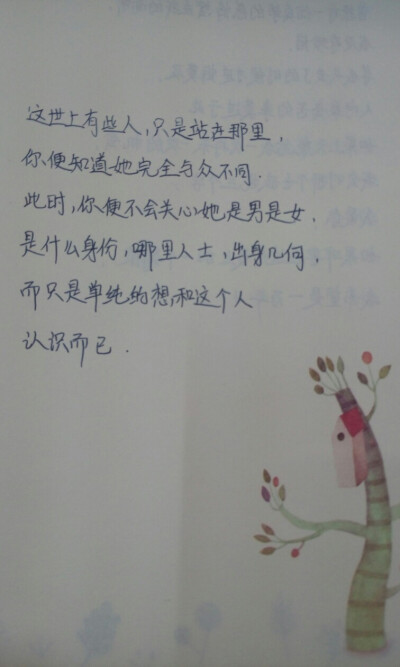 这世上有些人，只是站在那里，
你便知道她完全与众不同
此时，你便不会关心她是男是女，
是什么身份，哪里人士，出身几何，
而只是单纯的想和这个人
认识而已．